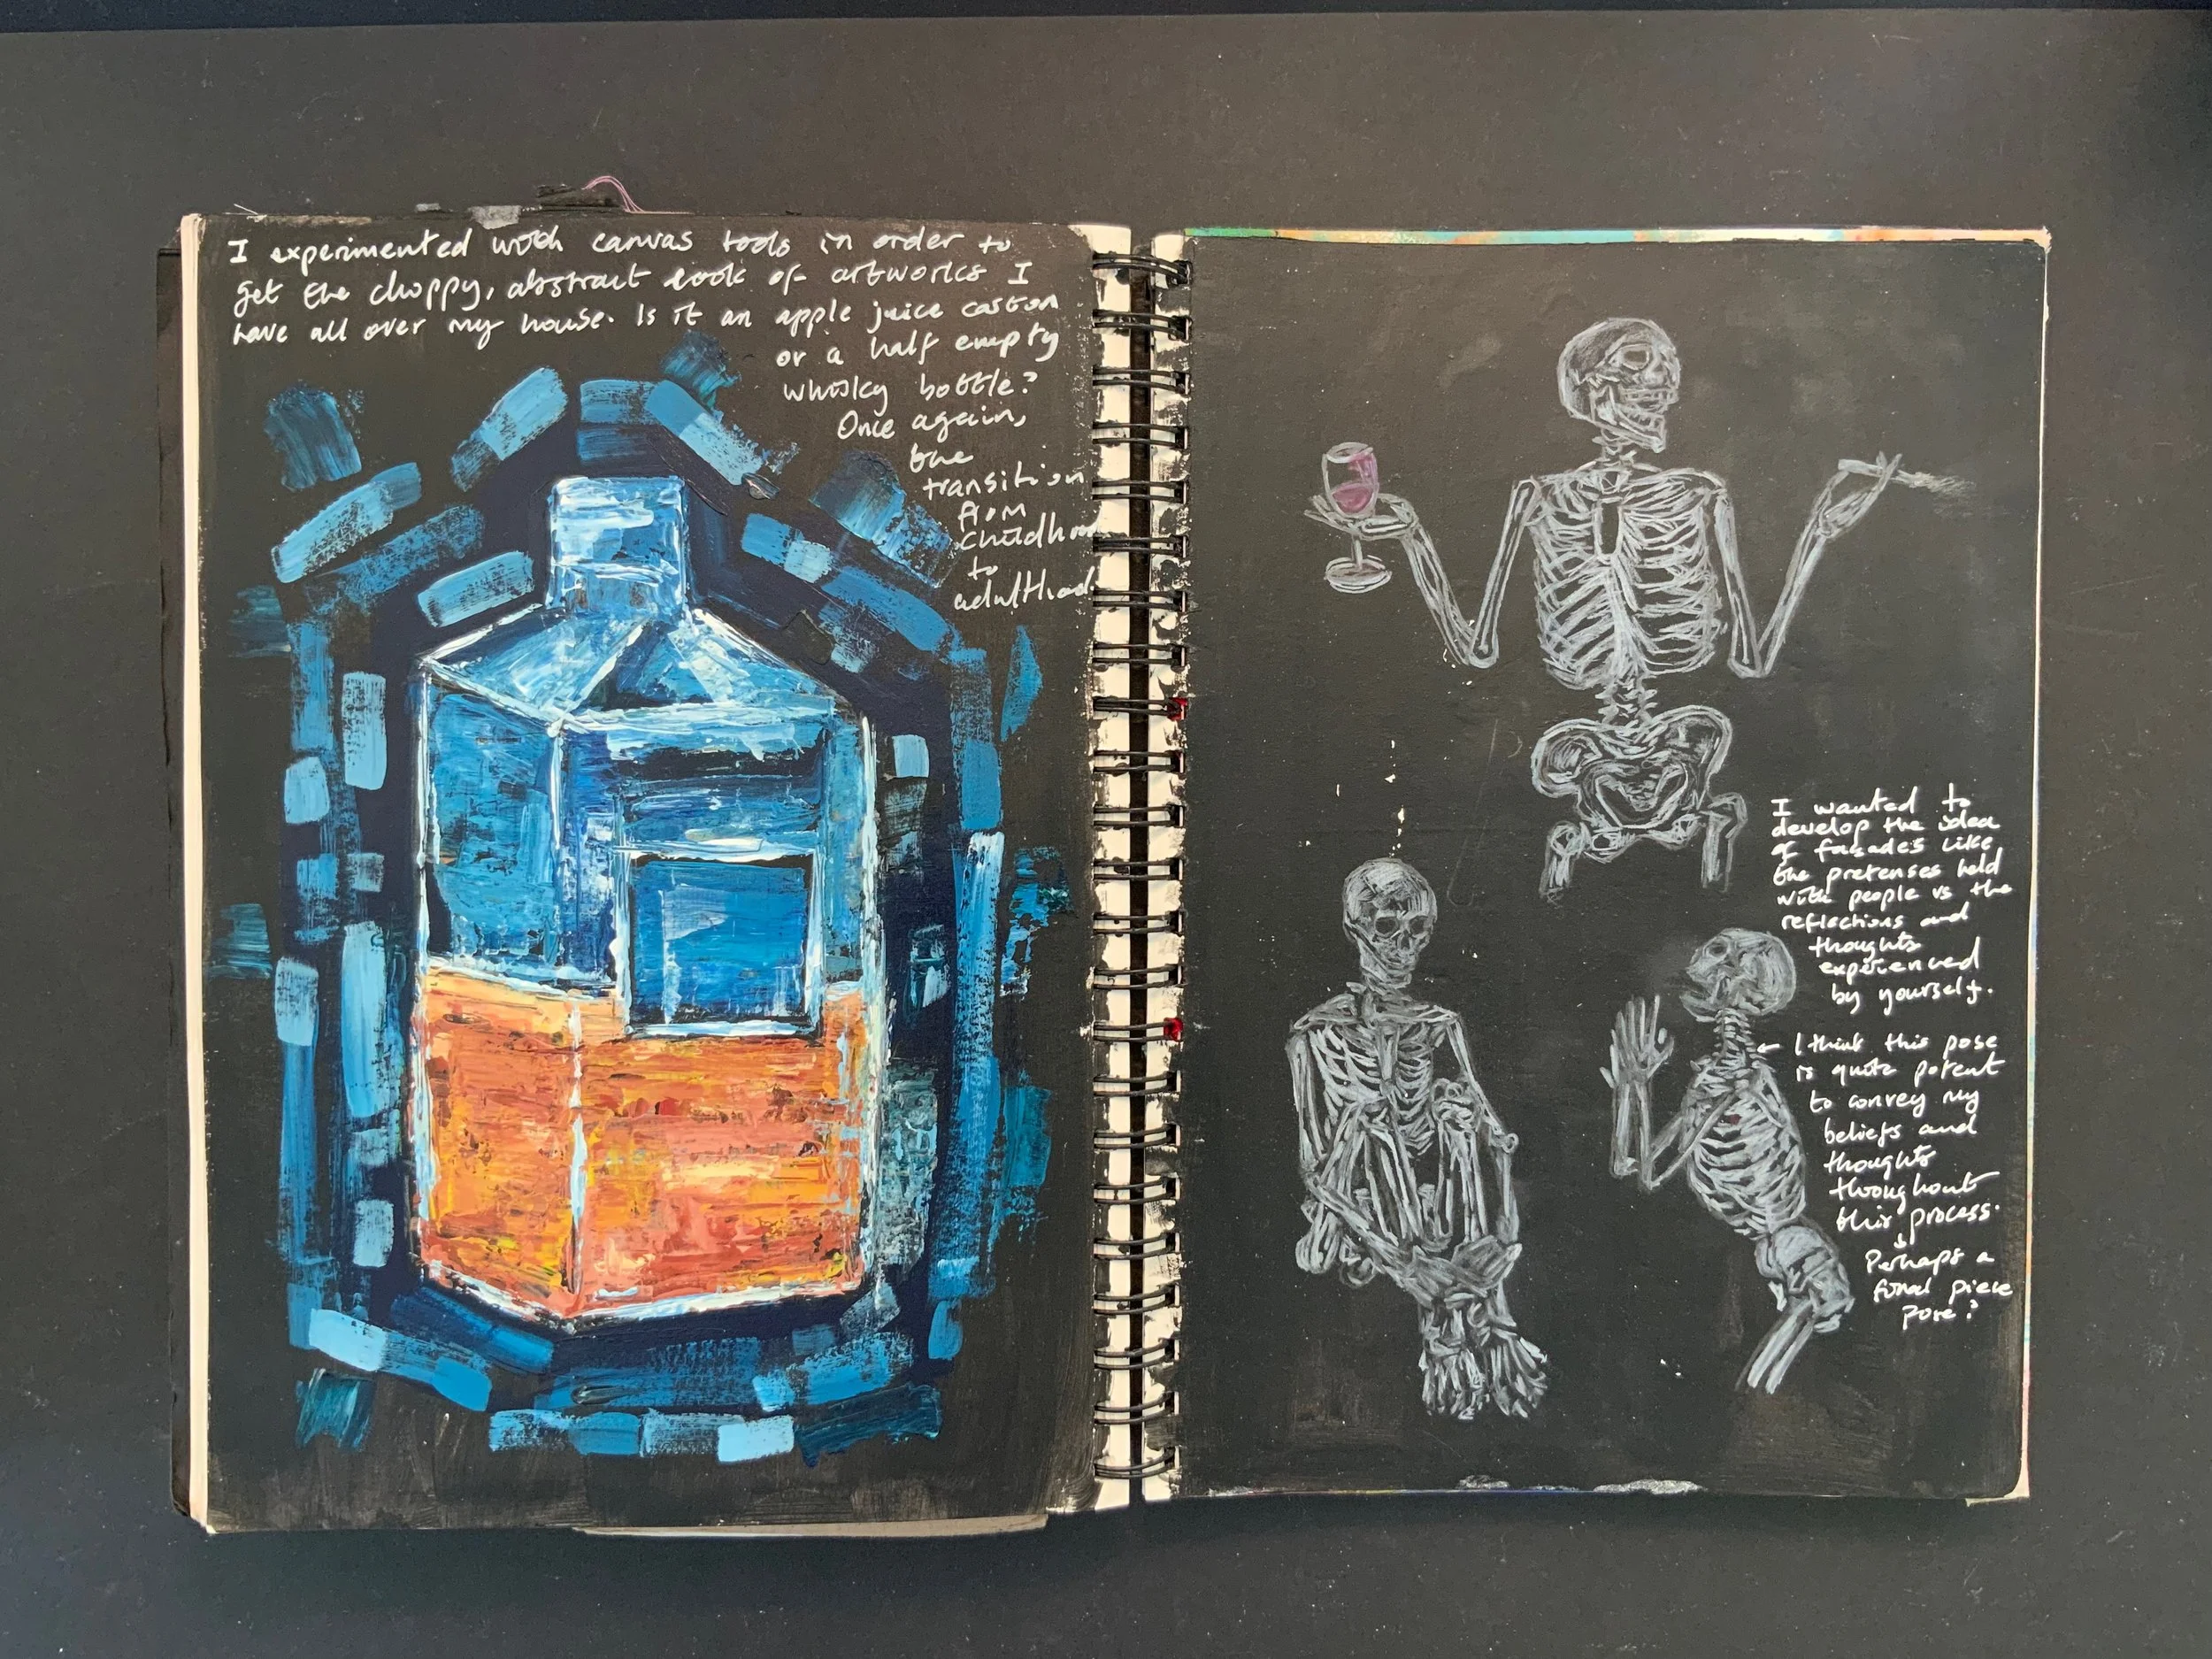 I experimented with canvas tools in order to
get the choppy, abstract look of artworks I
have all over my house. Is it an apple juice carton
or a half empty
whisky bottle?
Once again,
the
transition
from
childhood
to
adulthood.
I wanted to
develop the idea
of facades like
the pretenses held
with people vs the
reflections and
thoughts
experienced
by yourself.
← I think this pose
is quite potent
to convey my
beliefs and
thoughts
throughout
this process.
↓
Perhaps a
final piece
pose?